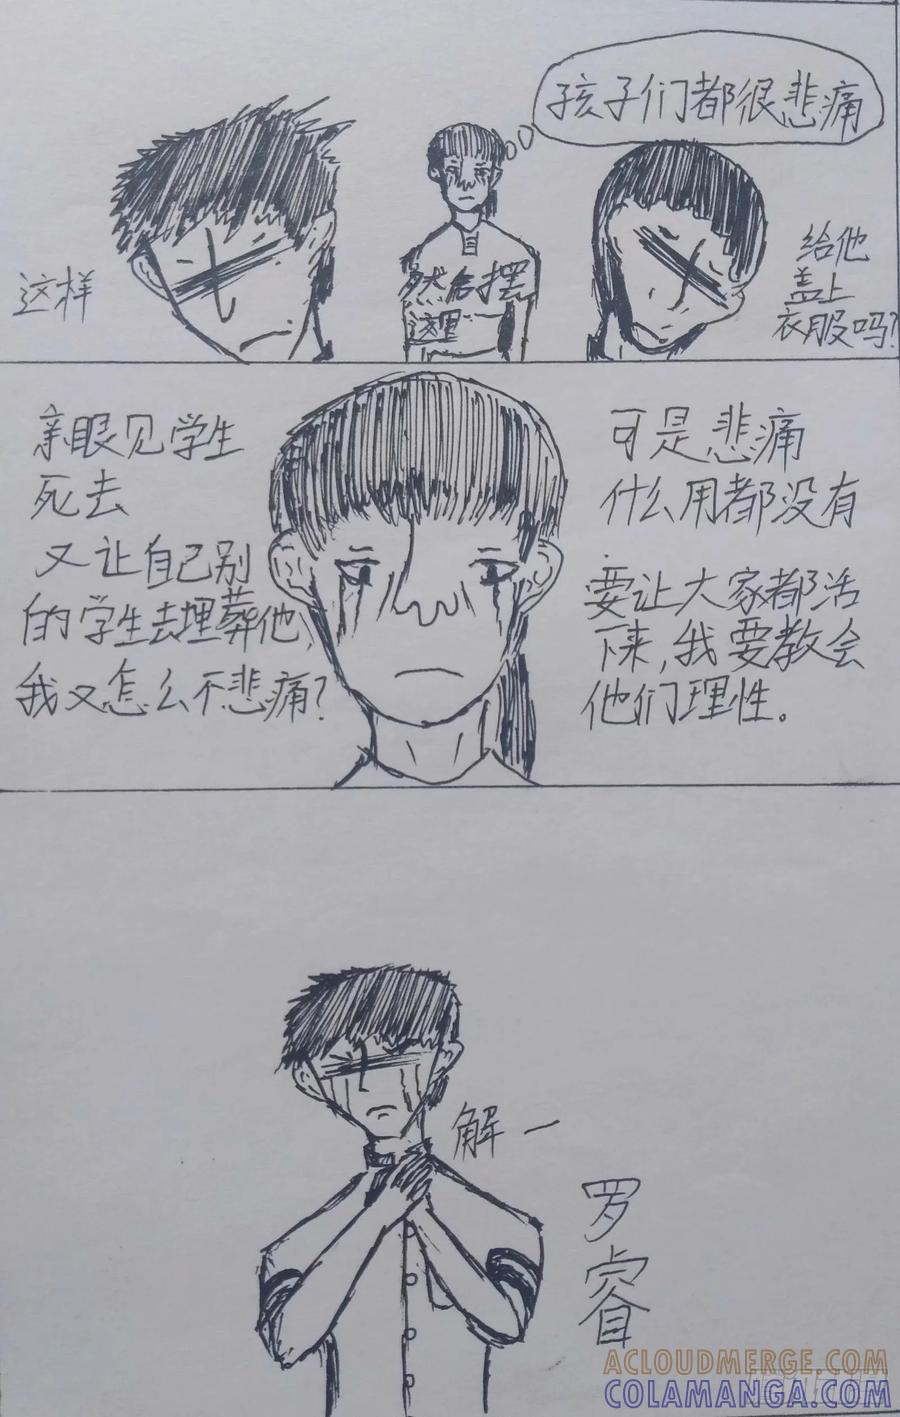 孩子们都很悲痛
这样
然后摆
这里……
给他
盖上
衣服吗?
亲眼见学生
死去
又让自己别
的学生去埋葬他
我又怎么不悲痛?
可是悲痛
什么用都没有
要让大家都活
下来,我要教会
他们理性。
解一
罗
睿
ACLOUDMERGE.COM
COLAMANGA.COM